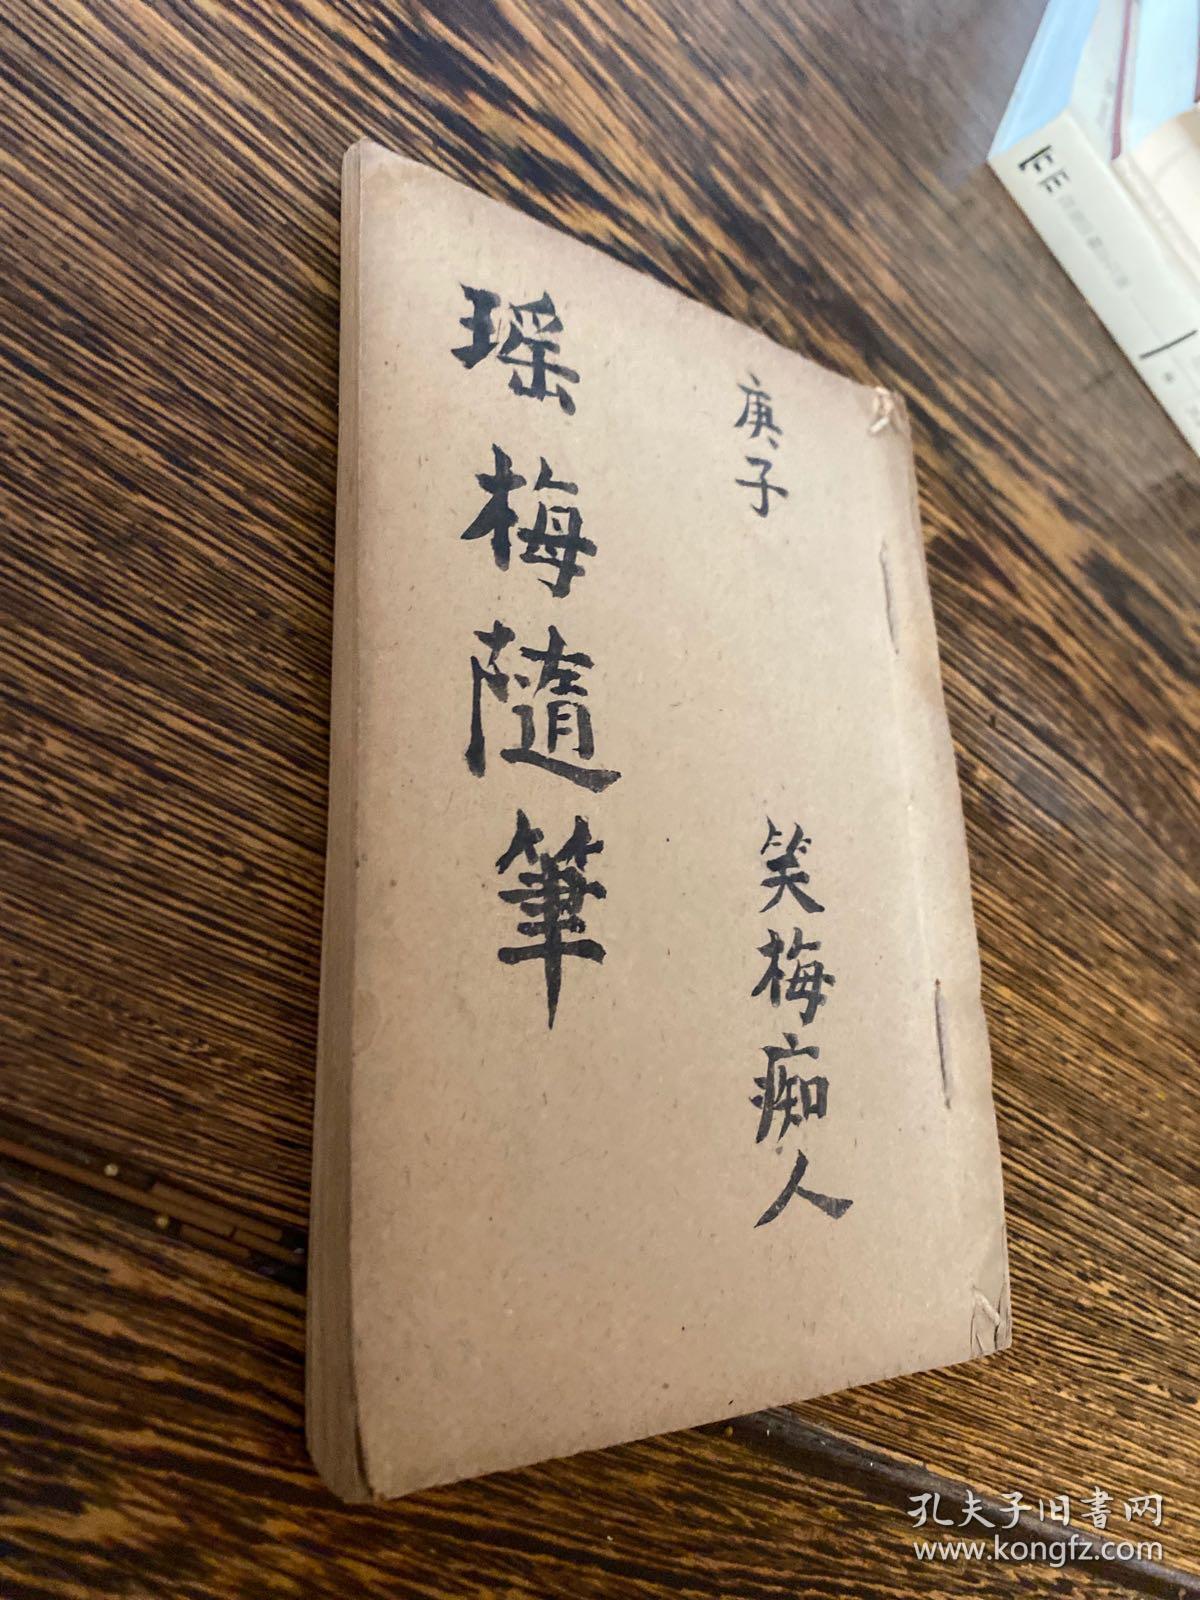 庚子
笑梅痴人
瑶梅隨筆
孔夫子旧書网
www.kongfz.com